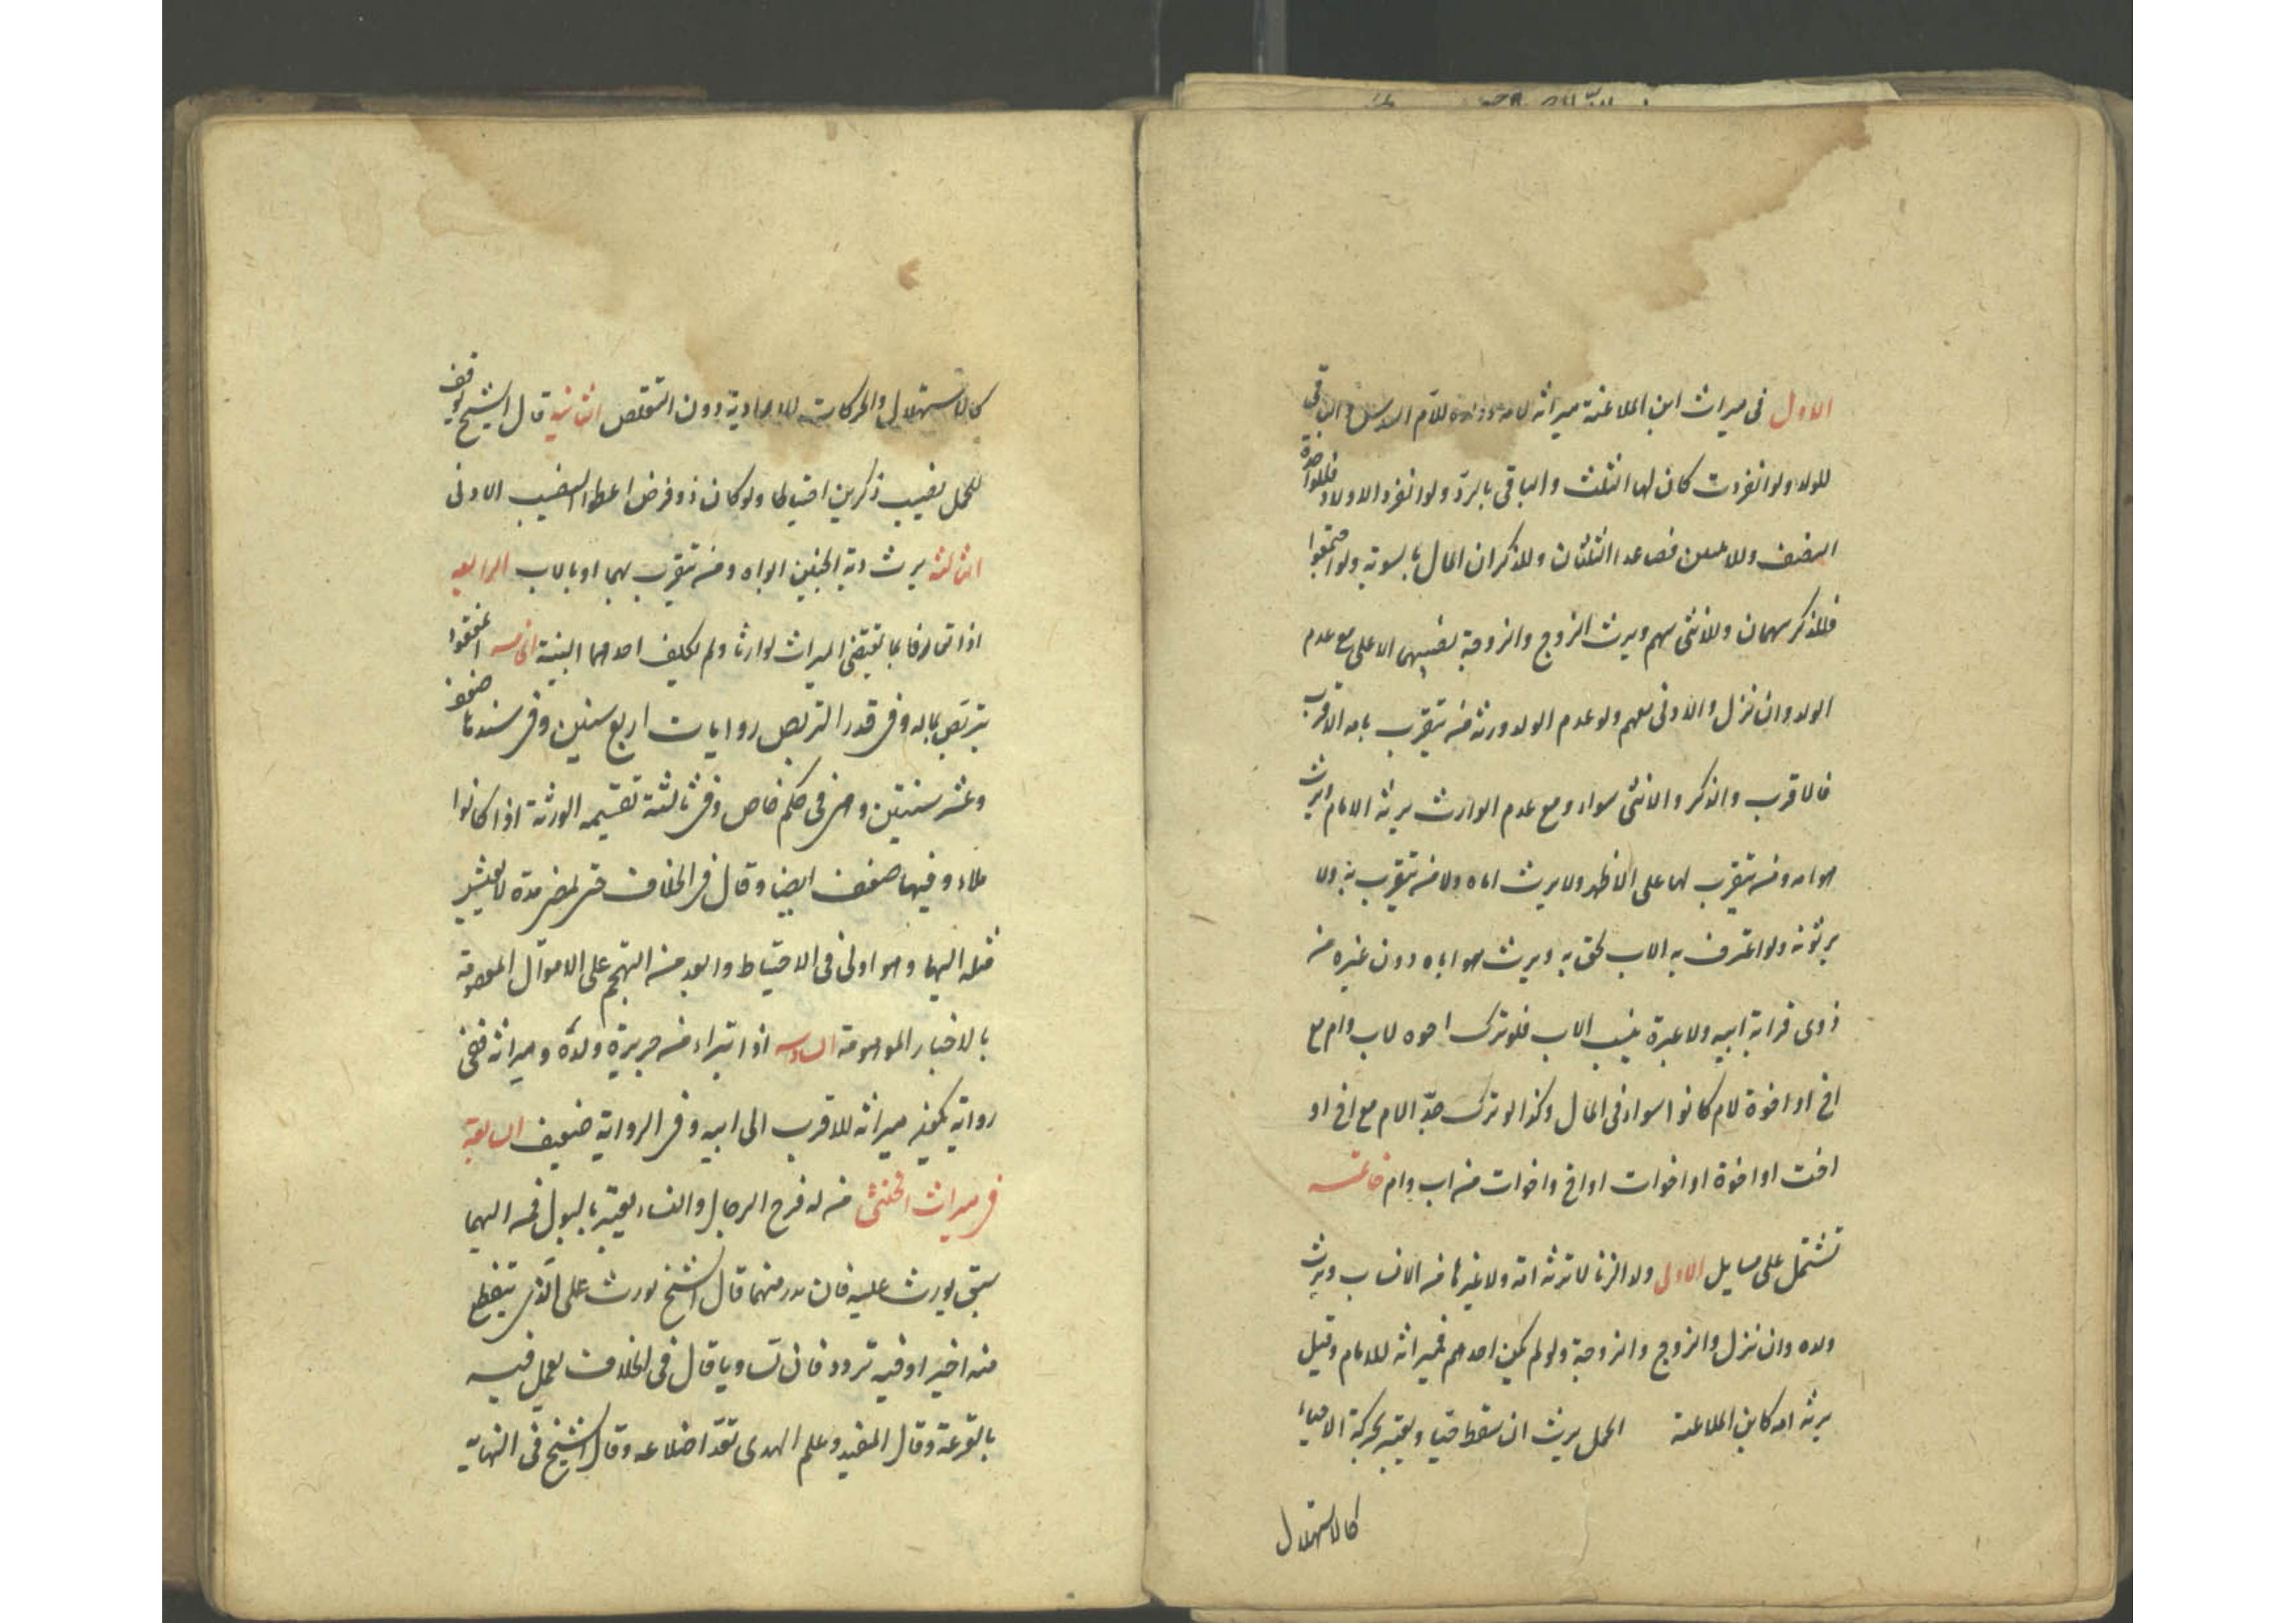 الاول فى ميراث ابن الملاعنة ميراثه لامه وولده للام السدس والباقى
للولد ولو انفردت كان لها الثلث والباقى بالرد ولو انفرد الاولاد فللواحدة
النصف وللاثنتين فصاعدا الثلثان وللذكران المال بالسوية ولو اجتمعوا
فللذكر سهمان وللانثى سهم ويرث الزوج والزوجة نصيبهما الاعلى مع عدم
الولد وان نزل والادنى معهم ولو عدم الولد ورثه من يتقرب بامه الاقرب
فالاقرب والذكر والانثى سواء ومع عدم الوارث يرثه الامام ويرث
هو امه ومن يتقرب بها على الاظهر ولا يرث اباه ولا من يتقرب به ولا
يرثونه ولو اعترف به الاب لحق به ويرث هو اباه دون غيره من
ذوى قرابة ابيه ولا عبرة بنسب الاب فلو ترك اخوه لاب وام مع
اخ او اخوة لام كانوا سواء فى المال وكذا لو ترك جد الام مع اخ او
اخت او اخوة او اخوات او اخ واخوات من اب وام خاتمة
تشتمل على مسايل الاولى ولد الزنا لا ترثه امه ولا غيرها من الانساب ويرث
ولده وان نزل والزوج والزوجة ولو لم يكن احدهم فميراثه للامام وقيل
يرثه امه كابن الملاعنة الحمل يرث ان سقط حيا ويعتبر بحركة الاحياء
كالاستهلال
كالاستهلال والحركات الارادية دون التقلص الثانية قال الشيخ يوقف
للحمل نصيب ذكرين احتياطا ولو كان ذو فرض اعطوا النصيب الادنى
الثالثة يرث دية الجنين ابواه ومن يتقرب بهما او بالاب الرابعة
اذا تعارفا بما يقتضى الميراث توارثا ولم يكلف احدهما البينة الخامسة المفقود
يتربص بماله وفى قدر التربص روايات اربع سنين وفى سندها ضعف
وعشر سنتين وهى فى حكم خاص وفى ثالثة تقسيمه الورثة اذا كانوا
ملاء وفيها ضعف ايضا وقال فى الخلاف حتى يمضى مدة لا يعيش
مثله اليها وهو اولى فى الاحتياط وابعد من التهجم على الاموال المعصومة
بالاخبار الموهومة السادسة اذا تبراء من جريرة ولده وميراثه ففى
رواية يكون ميراثه للاقرب الى ابيه وفى الرواية ضعيف السابعة
فى ميراث الخنثى من له فرج الرجال والنساء يعتبر بالبول فمن ايهما
سبق يورث عليه فان بدر منهما قال الشيخ يورث على الذى ينقطع
منه اخيرا وفيه تردد فان تساويا قال فى الخلاف يعمل فيه
بالقرعة وقال المفيد وعلم الهدى تعد اضلاعه وقال الشيخ فى النهاية